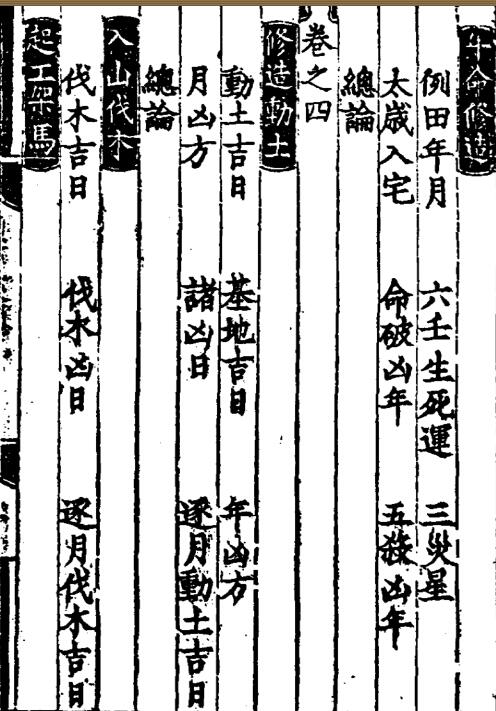 年命修造
例田年月 六壬生死運 三災星
太歲入宅 命破凶年 五殺凶年
總論
卷之四
修造動土
動土吉日 基地吉日 年凶方
月凶方 諸凶日 逐月動土吉日
總論
入山伐木
伐木吉日 伐木凶日 逐月伐木吉日
起工架馬